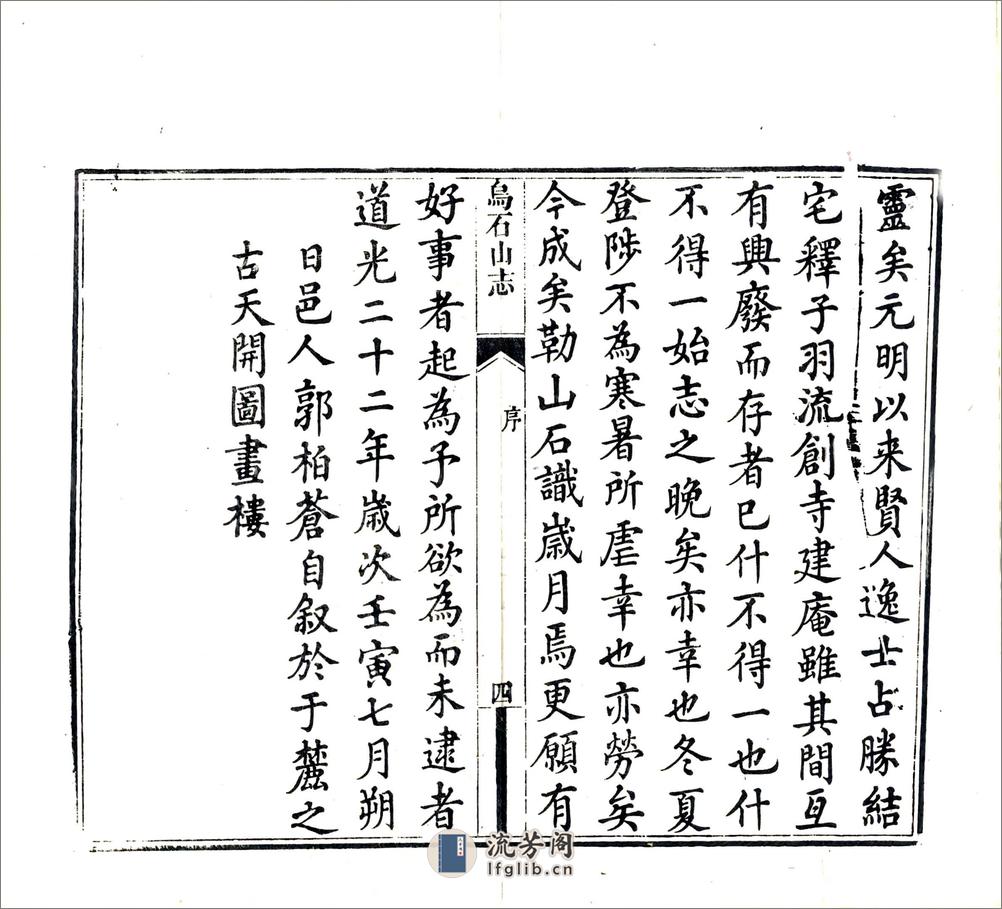 靈矣元明以来賢人逸士占勝結
宅釋子羽流創寺建庵雖其間亙
有興廢而存者已什不得一也什
不得一始志之晚矣亦幸也冬夏
登陟不為寒暑所虐幸也亦勞矣
今成矣勒山石識歲月焉更願有
烏石山志
序
四
好事者起為予所欲為而未逮者
道光二十二年歲次壬寅七月朔
日邑人郭柏蒼自叙於于麓之
古天開圖畫樓
流芳阁
lfglib.cn